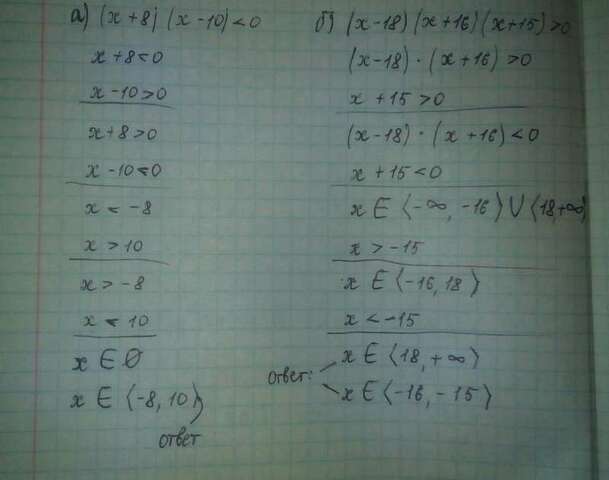 а) (x+8) (x-10) < 0
x+8 < 0
x-10 > 0
x+8 > 0
x-10 < 0
x < -8
x > 10
x > -8
x < 10
x ∈ ∅
x ∈ (-8, 10)
ответ
б) (x-18) (x+16) (x+15) > 0
(x-18) · (x+16) > 0
x +15 > 0
(x-18) · (x+16) < 0
x +15 < 0
x ∈ (-∞, -16) ∪ (18+∞)
x > -15
x ∈ (-16, 18)
x < -15
ответ: x ∈ (18, +∞)
x ∈ (-16, -15)